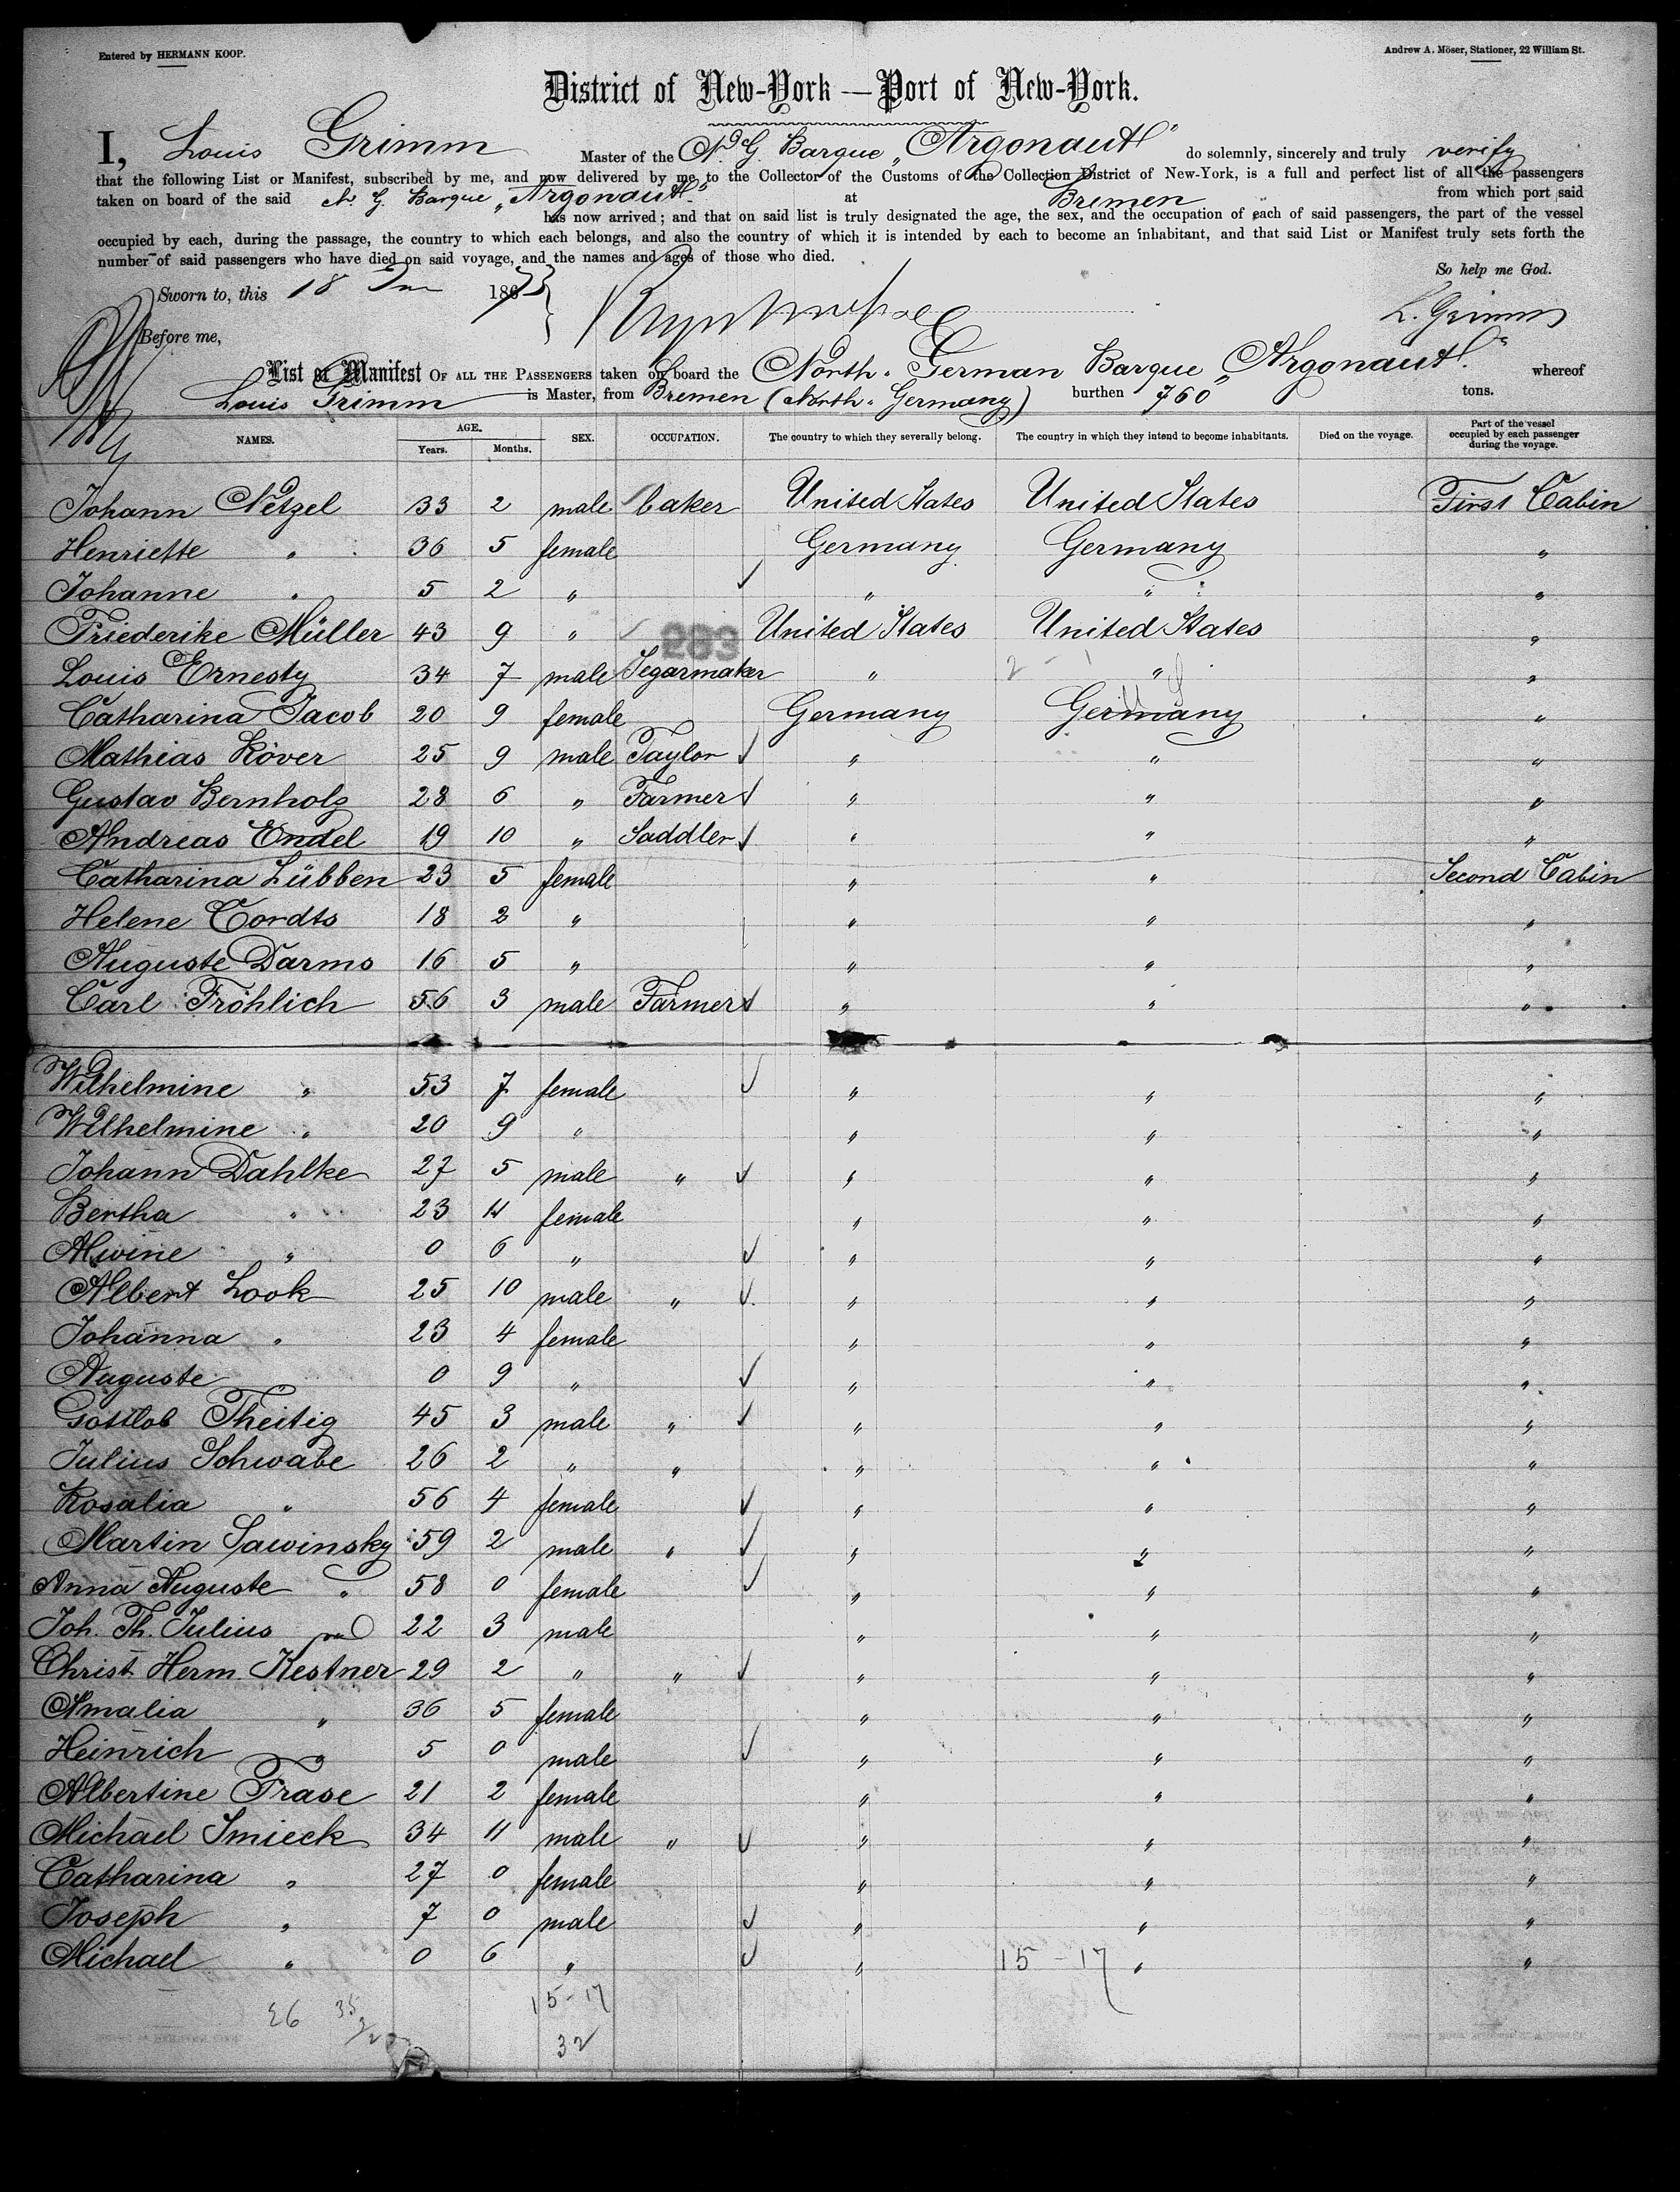 Entered by HERMANN KOOP.
Andrew A. Möser, Stationer, 22 William St.
District of New-York — Port of New-York.
I, Louis Grimm Master of the N. G. Barque „Argonaut" do solemnly, sincerely and truly verify
that the following List or Manifest, subscribed by me, and now delivered by me to the Collector of the Customs of the Collection District of New-York, is a full and perfect list of all the passengers
taken on board of the said N. G. Barque „Argonaut" at Bremen from which port said
has now arrived; and that on said list is truly designated the age, the sex, and the occupation of each of said passengers, the part of the vessel
occupied by each, during the passage, the country to which each belongs, and also the country of which it is intended by each to become an inhabitant, and that said List or Manifest truly sets forth the
number of said passengers who have died on said voyage, and the names and ages of those who died.
So help me God.
Sworn to, this 18 187
L. Grimm
Before me,
List or Manifest OF ALL THE PASSENGERS taken on board the North-German Barque „Argonaut" whereof
Louis Grimm is Master, from Bremen (North-Germany) burthen 760 tons.
NAMES. AGE. Years. Months. SEX. OCCUPATION. The country to which they severally belong. The country in which they intend to become inhabitants. Died on the voyage. Part of the vessel occupied by each passenger during the voyage.
Johann Netzel 33 2 male baker United States United States First Cabin
Henriette " 36 5 female Germany Germany "
Johanne " 5 2 " " " "
Friederike Müller 43 9 " 283 United States United States "
Louis Ernesty 34 7 male Segarmaker " " "
Catharina Jacob 20 9 female Germany Germany "
Mathias Röver 25 9 male Taylor " " "
Gustav Bernholz 28 6 " Farmer " " "
Andreas Endel 19 10 " Saddler " " "
Catharina Lübben 23 5 female " " Second Cabin
Helene Cordts 18 2 " " " "
Auguste Darms 16 5 " " " "
Carl Fröhlich 56 3 male Farmer " " "
Wilhelmine " 53 7 female " " "
Wilhelmine " 20 9 " " " "
Johann Dahlke 27 5 male " " " "
Bertha " 23 11 female " " "
Alwine " 0 6 " " " "
Albert Look 25 10 male " " " "
Johanna " 23 4 female " " "
Auguste 0 9 " " " "
Gottlob Theitig 45 3 male " " " "
Julius Schwabe 26 2 " " " " "
Rosalia " 56 4 female " " "
Martin Sawinsky 59 2 male " " " "
Anna Auguste " 58 0 female " " "
Joh. Th. Julius 22 3 male " " "
Christ. Herm. Kestner 29 2 " " " " "
Amalia " 36 5 female " " "
Heinrich " 5 0 male " " "
Albertine Frase 21 2 female " " "
Michael Smieck 34 11 male " " " "
Catharina " 27 0 female " " "
Joseph " 7 0 male " " "
Michael " 0 6 " " 15-17 " "
26 35 15-17
32